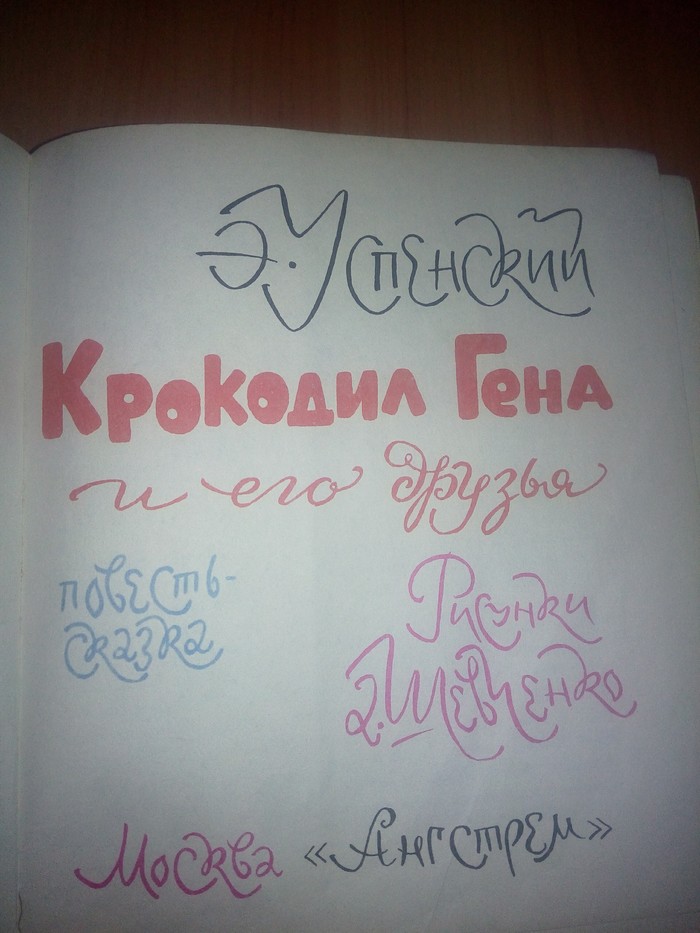 Э. Успенский
Крокодил Гена
и его друзья
повесть-
сказка
Рисунки
А. Шевченко
Москва «Ангстрем»